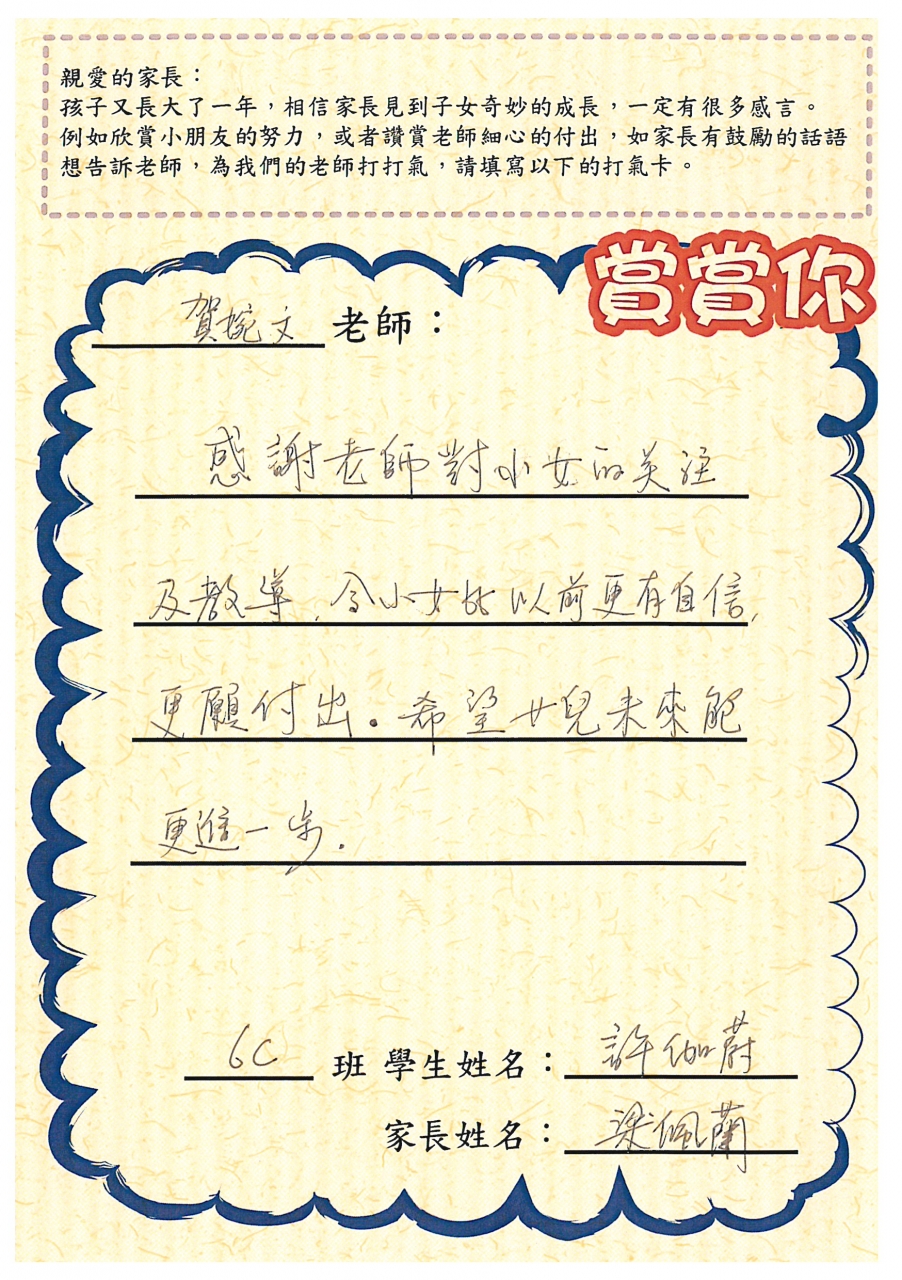 親愛的家長：
孩子又長大了一年，相信家長見到子女奇妙的成長，一定有很多感言。
例如欣賞小朋友的努力，或者讚賞老師細心的付出，如家長有鼓勵的話語
想告訴老師，為我們的老師打打氣，請填寫以下的打氣卡。
賞賞你
賀婉文 老師：
感謝老師對小女的关注
及教導，令小女比以前更有自信，
更願付出。希望女兒未來能
更進一步。
6C 班 學生姓名：許伽蔚
家長姓名：梁佩蘭